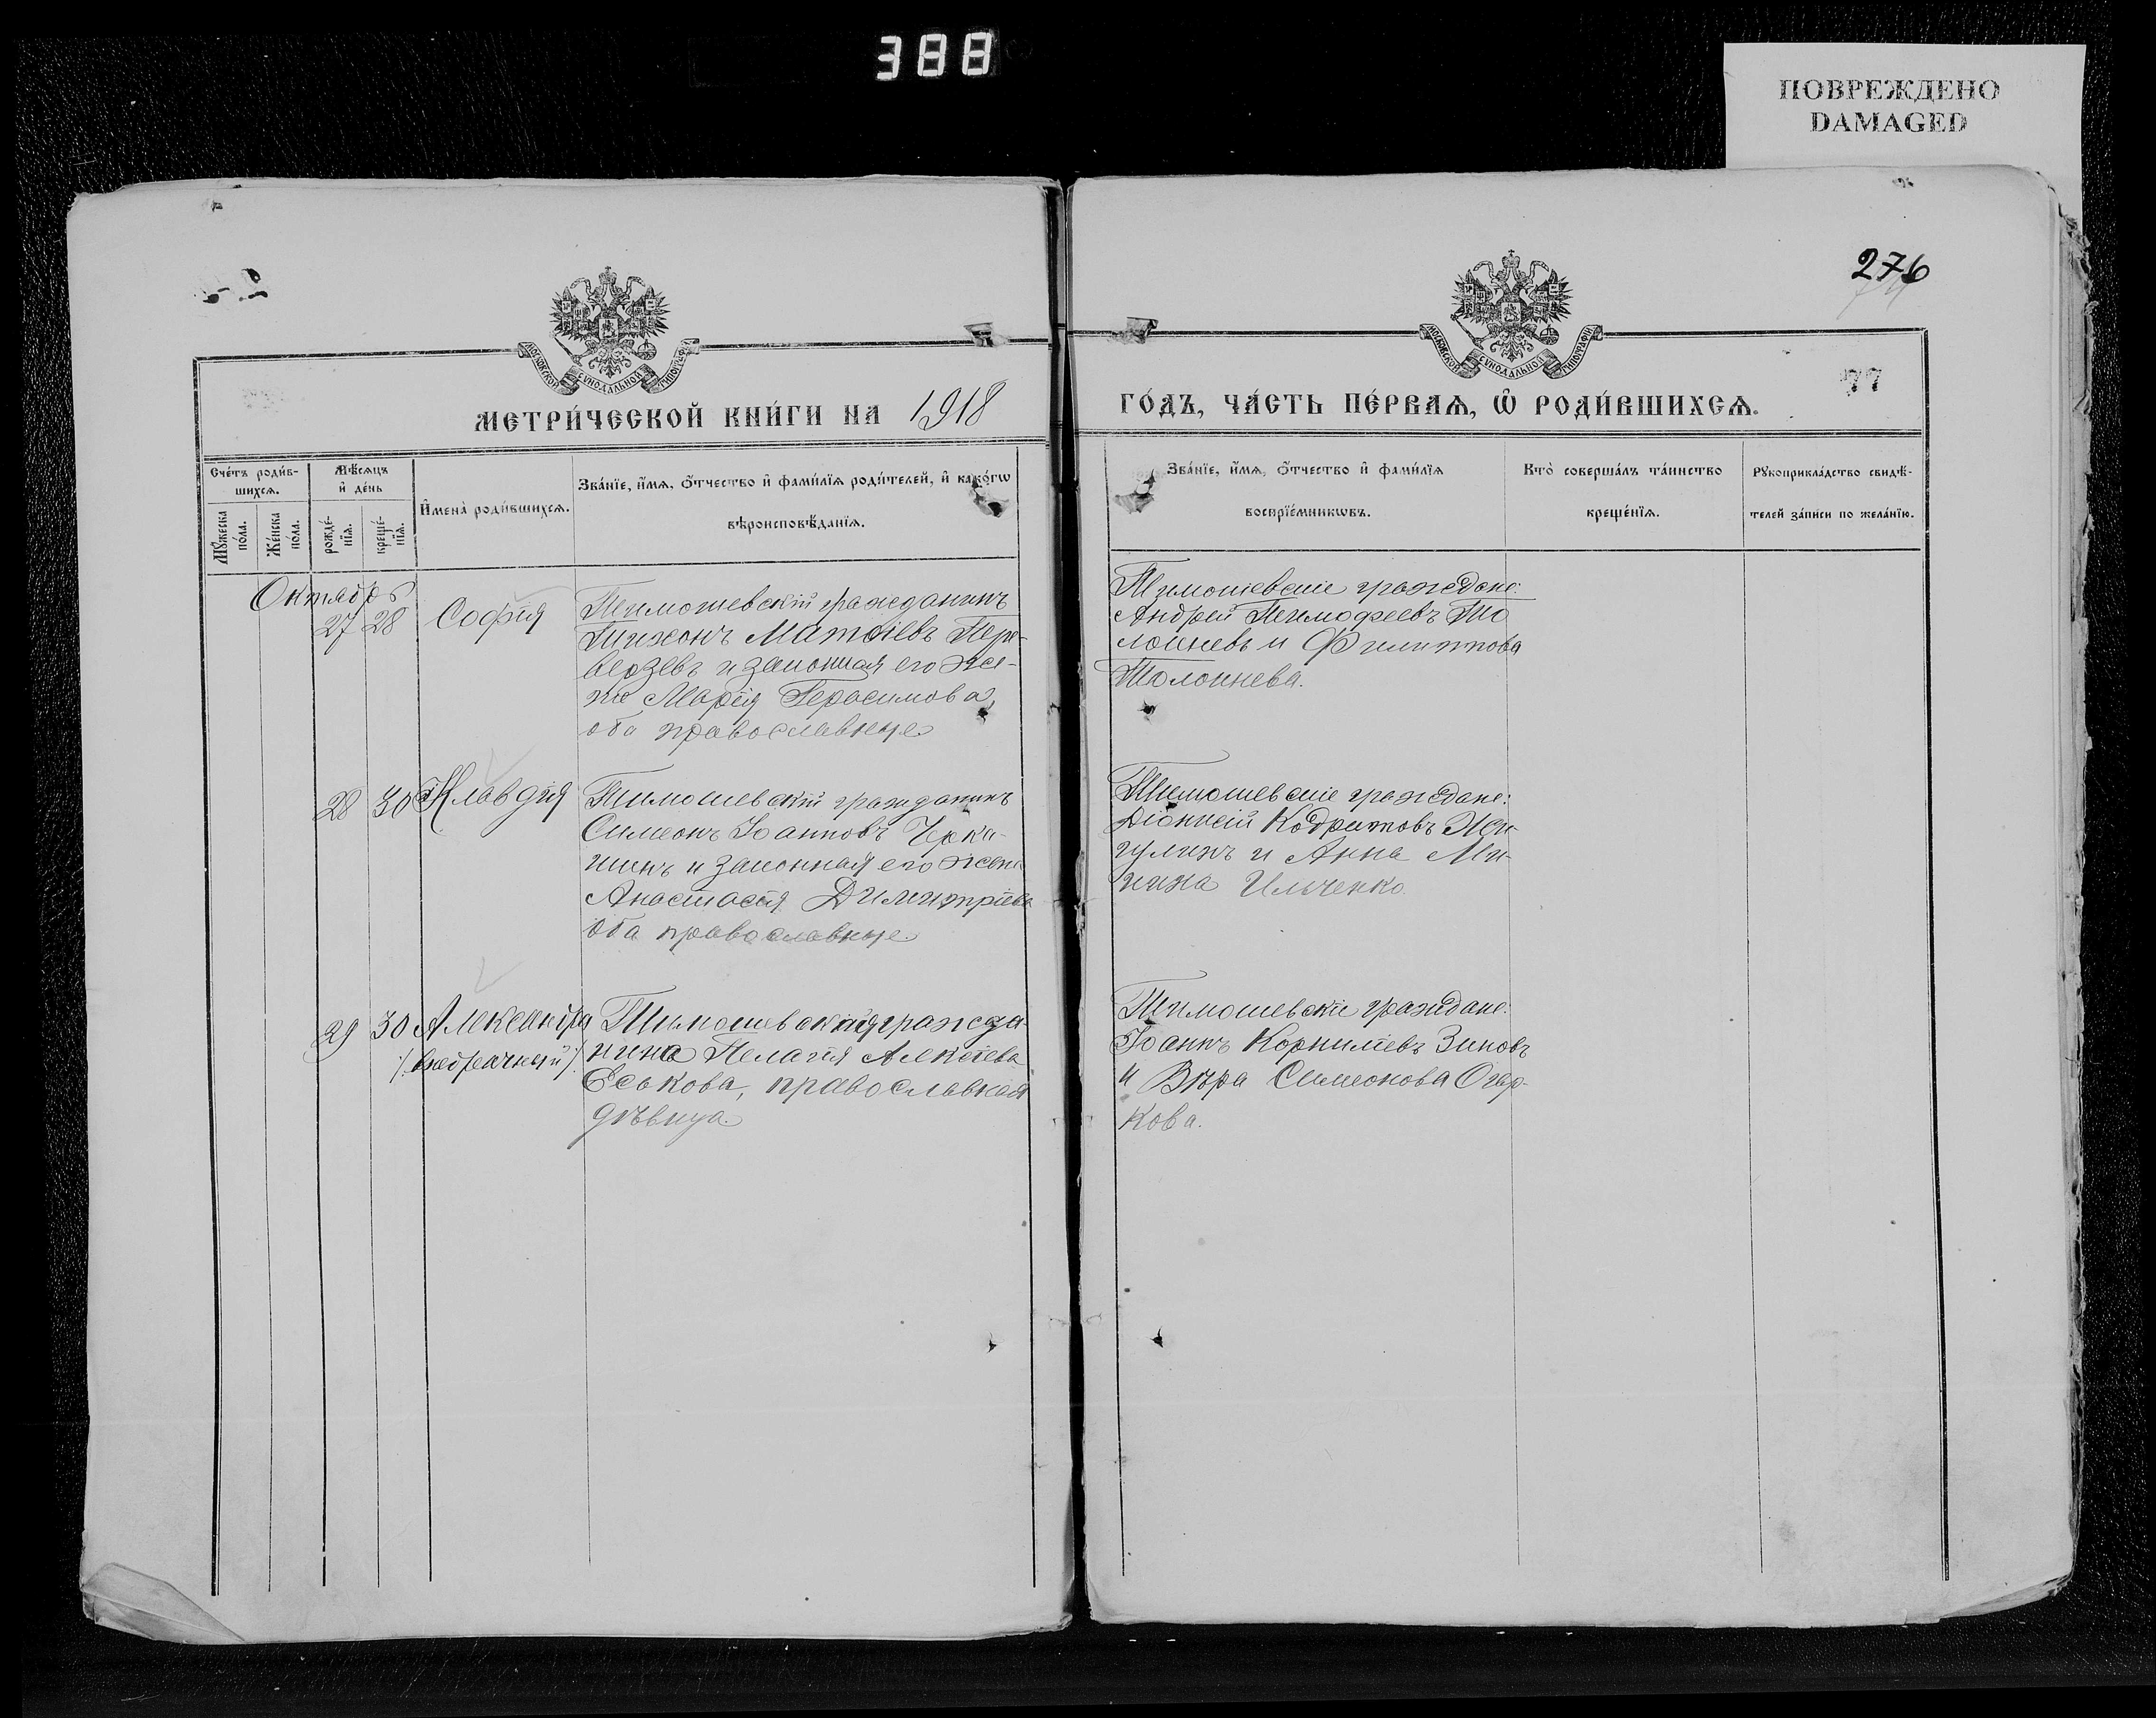 388
ПОВРЕЖДЕНО
DAMAGED
276
77
МОСКОВСКОЙ СѴНОДАЛЬНОЙ ТИПОГРАФИИ
МОСКОВСКОЙ СѴНОДАЛЬНОЙ ТИПОГРАФИИ
МЕТРИ́ЧЕСКОЙ КНИ́ГИ НА 1918
ГО́ДЪ, ЧА́СТЬ ПЕ́РВАѦ, Ѽ РОДИ́ВШИХСѦ.
Сче́тъ роди́в-
шихсѧ.
Мꙋ́жеска
по́ла.
Же́нска
по́ла.
Мѣ́сѧцъ
и҆ де́нь
рожде́-
нїѧ.
креще́-
нїѧ.
И҆мена̀ роди́вшихсѧ.
Зва́нїе, и҆́мѧ, ѻ҆́тчество и҆ фами́лїѧ роди́телей, и҆ како́гѡ
вѣроисповѣ́данїѧ.
Зва́нїе, и҆́мѧ, ѻ҆́тчество и҆ фами́лїѧ
воспрїе́мникѡвъ.
Кто̀ соверша́лъ та́инство
креще́нїѧ.
Рꙋкоприкла́дство свидѣ́-
телей за́писи по жела́нїю.
Октябрь
27 28 София
Тимошевскій гражданинъ
Тихонъ Матѳіевъ Пере-
верзевъ и законная его же-
на Марія Герасимова,
оба православные.
Тимошевскіе граждане:
Андрей Тимофеевъ То
и Филиппова
28 30 Клавдія
Тимошевскій гражданинъ
Симеонъ Іоанновъ Черка-
шинъ и законная его жена
Анастасія Димитріева
оба православные.
Тимошевскіе граждане:
Діонисій Кодратовъ
и Анна Ми-
нина Ильченко.
29 30 Александра
/:внебрачный:/
Тимошевская гражда-
нина Пелагія Алексіева
Еськова, православная
дѣвица.
Тимошевскіе граждане:
Іоаннъ Корниліевъ Зиновъ
и Вѣра Симеонова Огар-
кова.